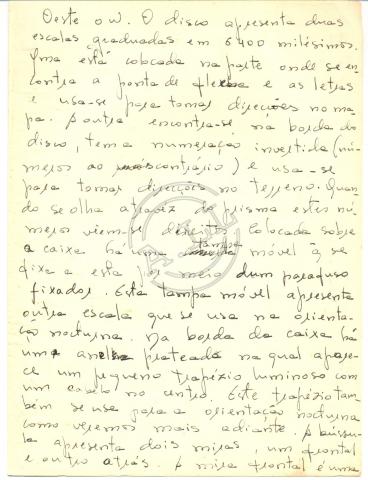 Oeste o W. O disco apresenta duas
escalas graduadas em 6400 milésimos.
Uma está colocada na parte onde se en-
contra a ponta de flecha e as letras
e usa-se para tomar direcções no ma-
pa. A outra encontra-se na borda do
disco, tem a numeração invertida (nú-
meros ao contrário) e usa-se
para tomar direcções no terreno. Quan-
do se olha atravez do prisma estes nú-
meros vêem-se direitos. Colocada sobre
a caixa há uma tampa móvel q se
fixa a esta por meio dum parafuso
fixador. Esta tampa móvel apresenta
outra escala que se usa na orienta-
ção nocturna. Na borda da caixa há
uma prateada na qual apare-
ce um pequeno trapézio luminoso com
um cabelo no centro. Este trapézio tam-
bém se usa para a orientação nocturna
como veremos mais adiante. A bússu-
la apresenta dois miras, um frontal
e outro atrás. A mira frontal é uma